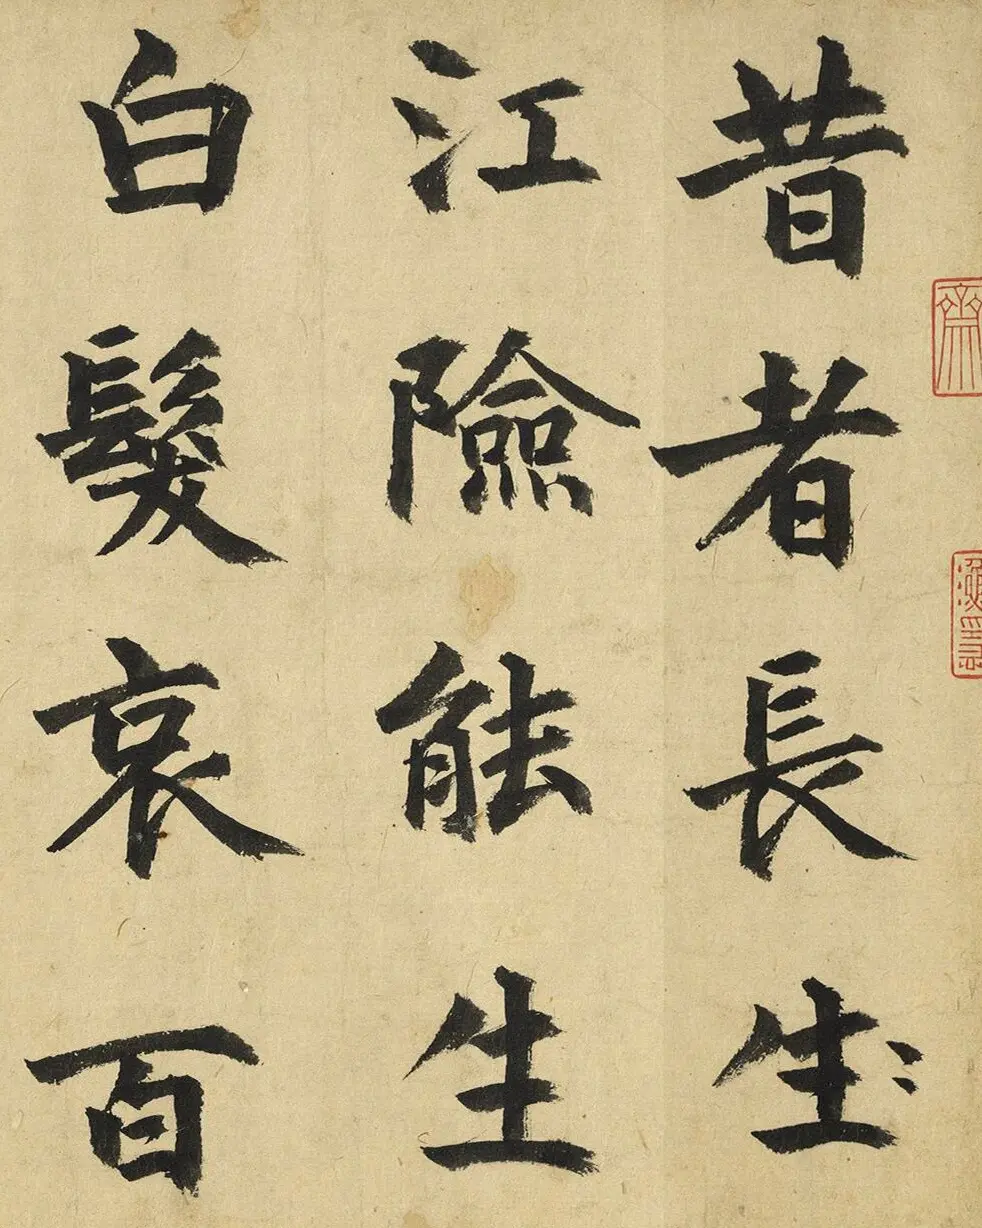 昔者長生
江險能生
白髮哀百